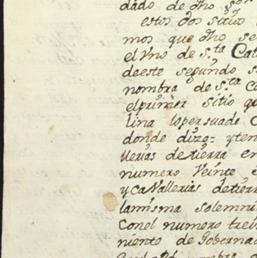 dado de dho s.or
estos dos sitios
mos que dho se
el Vno de s.ta Cat
de este segundo s
nombra de s.ta c
el primer sitio qu
lina lo persuade
donde dize= y ten
llerias de tierra en
numero Veinte
y cavallerias de tierr
la misma solemni
con el numero trei
niento de Gobernad